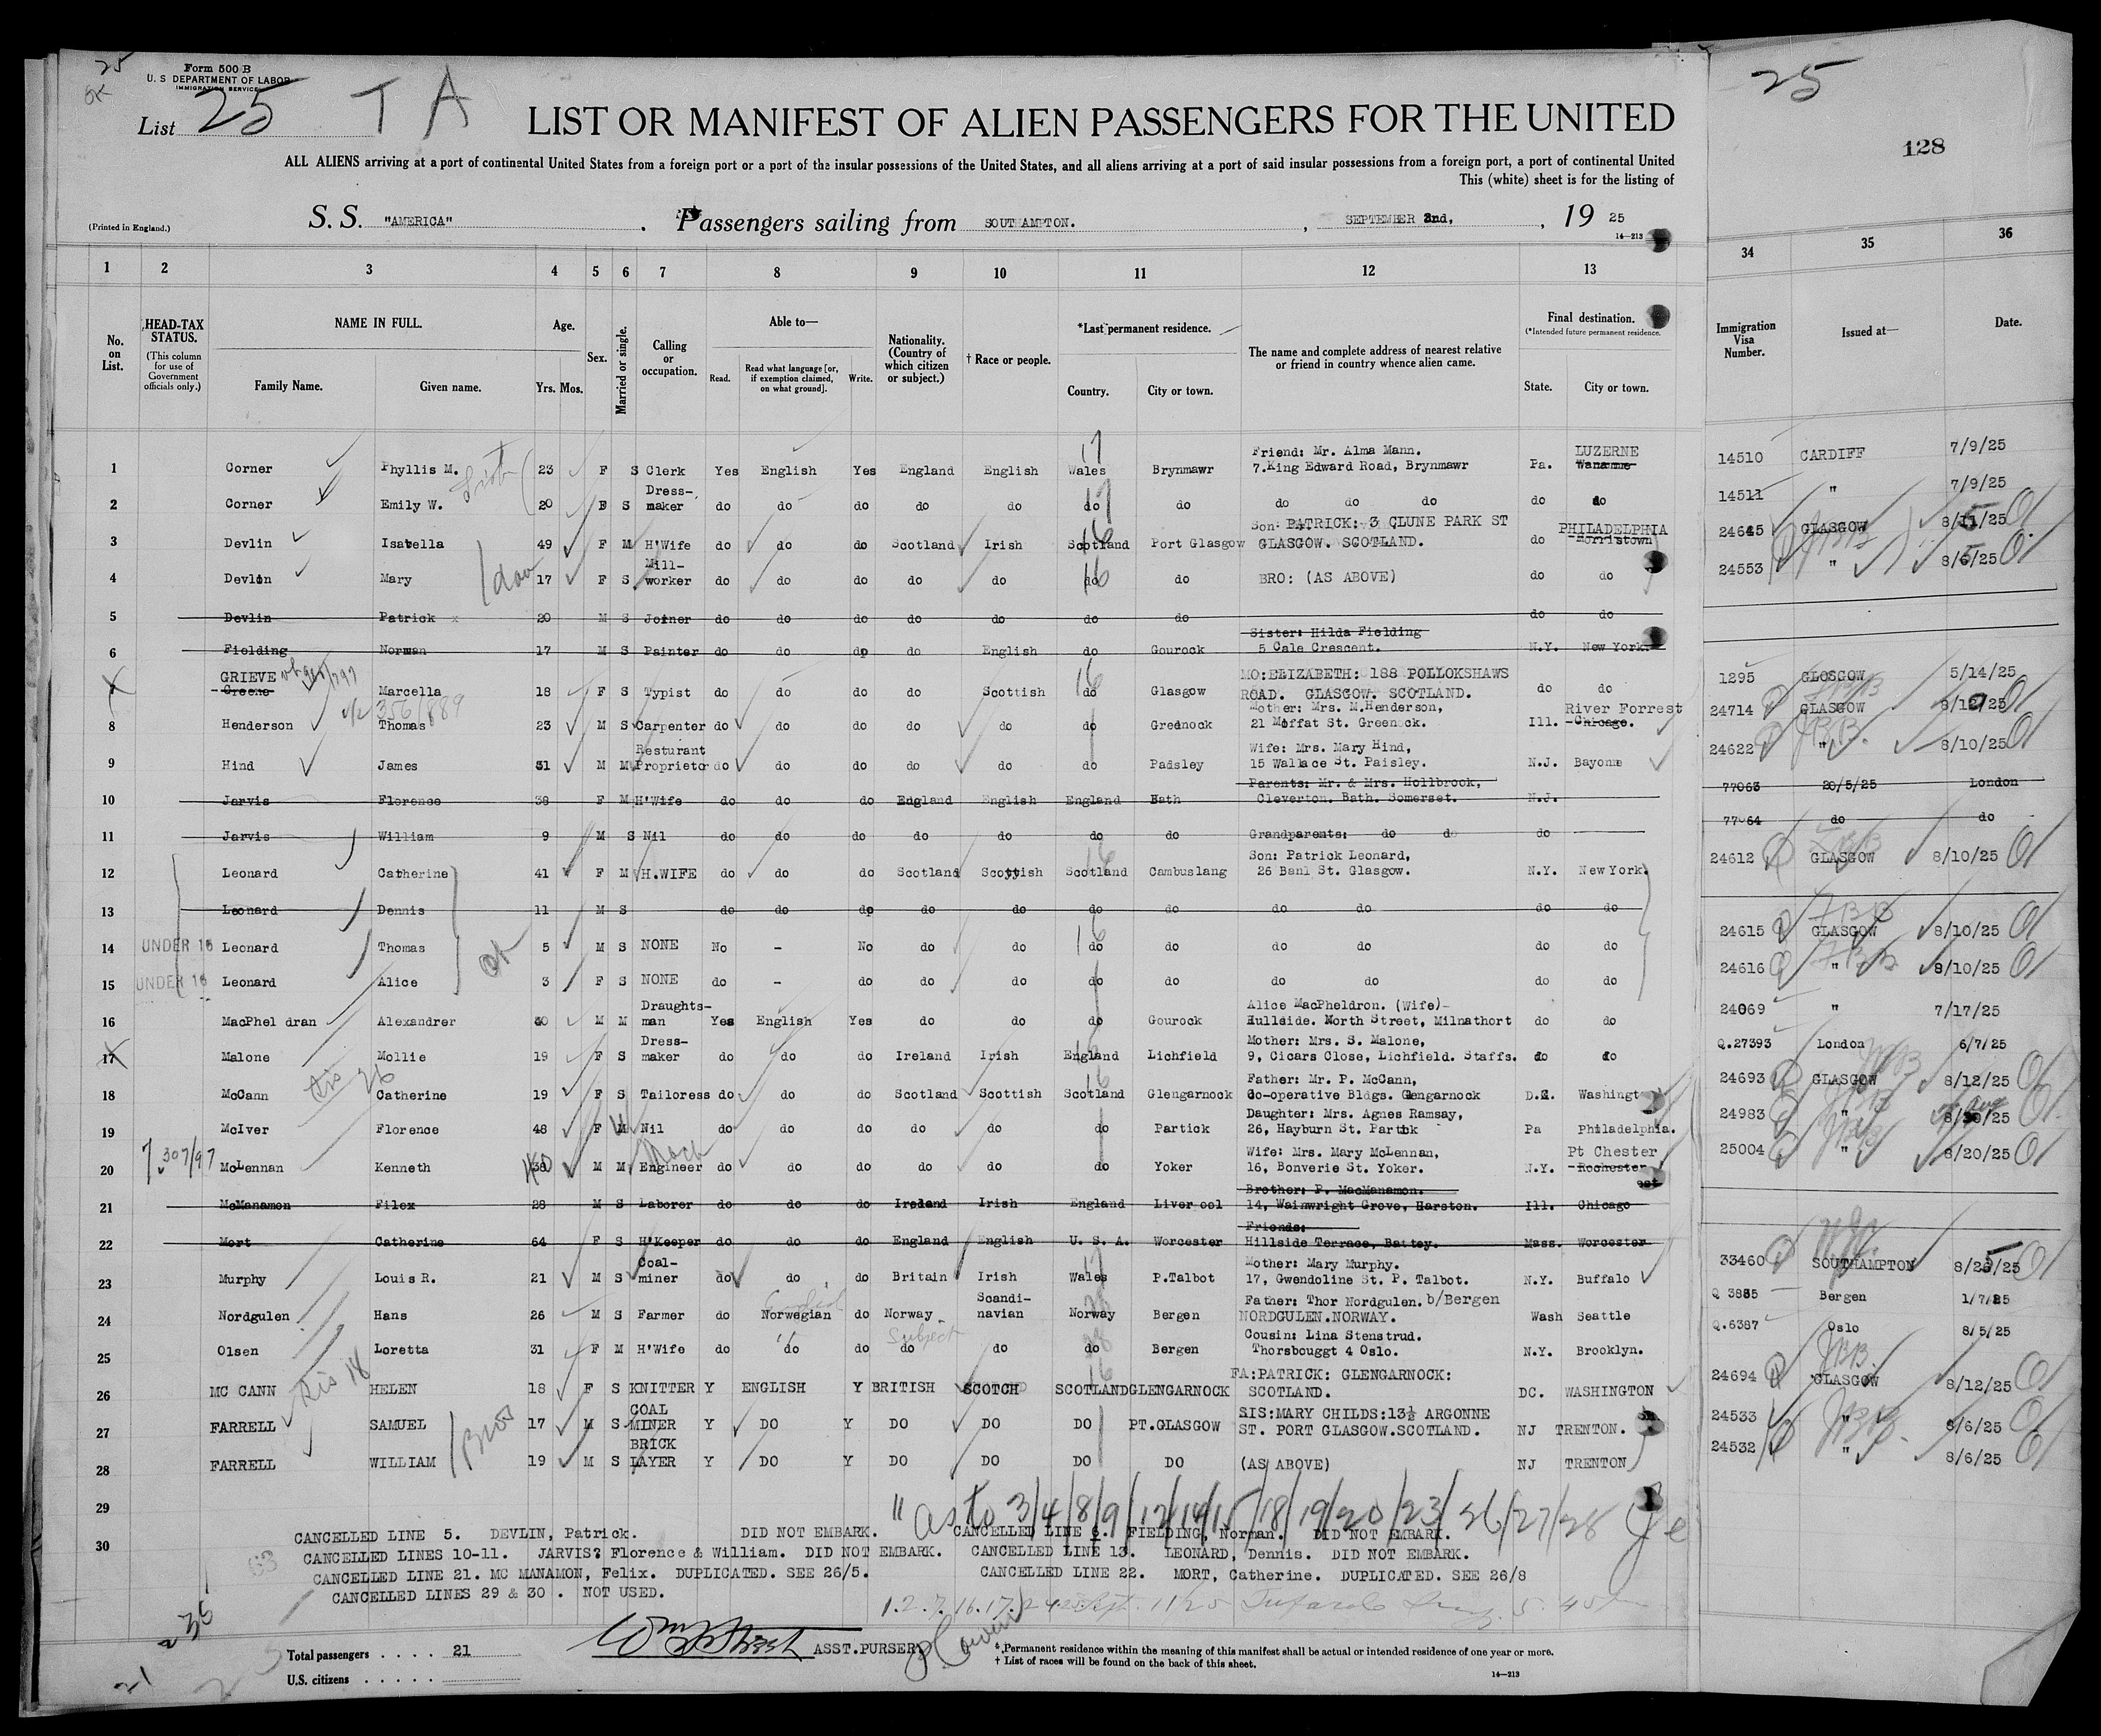 25
Form 500 B
U. S DEPARTMENT OF LABOR
IMMIGRATION SERVICE
OK
List 25 T A
25
128
LIST OR MANIFEST OF ALIEN PASSENGERS FOR THE UNITED
ALL ALIENS arriving at a port of continental United States from a foreign port or a port of the insular possessions of the United States, and all aliens arriving at a port of said insular possessions from a foreign port, a port of continental United
This (white) sheet is for the listing of
(Printed in England.) S. S. "AMERICA" . Passengers sailing from SOUTHAMPTON. , SEPTEMBER 2nd, , 19 25
14—213
1 2 3 4 5 6 7 8 9 10 11 12 13 34 35 36
No. on List. HEAD-TAX STATUS. (This column for use of Government officials only.) NAME IN FULL. Family Name. Given name. Age. Yrs. Mos. Sex. Married or single. Calling or occupation. Able to— Read. Read what language [or, if exemption claimed, on what ground]. Write. Nationality. (Country of which citizen or subject.) † Race or people. *Last permanent residence. Country. City or town. The name and complete address of nearest relative or friend in country whence alien came. Final destination. (*Intended future permanent residence. State. City or town. Immigration Visa Number. Issued at— Date.
Friend: Mr. Alma Mann. LUZERNE
1 Corner Phyllis M. 23 F S Clerk Yes English Yes England English Wales Brynmawr 7.King Edward Road, Brynmawr Pa. Wanamne 14510 CARDIFF 7/9/25
Dress-
2 Corner Emily W. 20 F S maker do do do do do do do do do do do do 14511 " 7/9/25
Son: PATRICK: 3 CLUNE PARK ST PHILADELPHIA
3 Devlin Isabella 49 F M H'Wife do do do Scotland Irish Scotland Port Glasgow GLASGOW. SCOTLAND. do Norristown 24645 GLASGOW 8/11/25
Mill-
4 Devlin Mary 17 F S worker do do do do do do do BRO: (AS ABOVE) do do 24553 " 8/6/25
5 Devlin Patrick x 20 M S Joiner do do do do do do do do do
Sister: Hilda Fielding
6 Fielding Norman 17 M S Painter do do do do English do Gourock 5 Cale Crescent. N.Y. New York.
GRIEVE MO:ELIZABETH: 188 POLLOKSHAWS
7 Greene Marcella 18 F S Typist do do do do Scottish do Glasgow ROAD. GLASGOW. SCOTLAND. do do 1295 GLOSGOW 5/14/25
356/889
Mother: Mrs. M.Henderson, River Forrest
8 Henderson Thomas 23 M S Carpenter do do do do do do Greenock 21 Moffat St. Greenock. Ill. Chicago. 24714 GLASGOW 8/12/25
Resturant Wife: Mrs. Mary Hind,
9 Hind James 31 M M Proprietor do do do do do do Paisley 15 Wallace St. Paisley. N.J. Bayonne 24622 " 8/10/25
Parents: Mr. & Mrs. Hollbrook,
10 Jarvis Florence 38 F M H'Wife do do do England English England Bath Cleverton. Bath. Somerset. N.J. 77063 20/5/25 London
11 Jarvis William 9 M S Nil do do do do do do do Grandparents: do do do 77064 do do
Son: Patrick Leonard,
12 Leonard Catherine 41 F M H.WIFE do do do Scotland Scottish Scotland Cambuslang 26 Banl St. Glasgow. N.Y. New York. 24612 GLASGOW 8/10/25
13 Leonard Dennis 11 M S do do do do do do do do do do do
14 UNDER 16 Leonard Thomas 5 M S NONE No - No do do do do do do do do 24615 GLASGOW 8/10/25
15 UNDER 16 Leonard Alice 3 F S NONE do - do do do do do do do do do 24616 " 8/10/25
Draughts- Alice MacPheldron. (Wife)-
16 MacPhel dran Alexandrer 40 M M man Yes English Yes do do do Gourock Hullside. North Street, Milnathort do do 24069 " 7/17/25
Dress- Mother: Mrs. S. Malone,
17 Malone Mollie 19 F S maker do do do Ireland Irish England Lichfield 9, Cicars Close, Lichfield. Staffs. do do Q.27393 London 6/7/25
Father: Mr. P. McCann,
18 McCann Catherine 19 F S Tailoress do do do Scotland Scottish Scotland Glengarnock Co-operative Bldgs. Glengarnock D.C. Washingt 24693 GLASGOW 8/12/25
Daughter: Mrs. Agnes Ramsay,
19 McIver Florence 48 F M Nil do do do do do do Partick 26, Hayburn St. Partick Pa Philadelphia. 24983 "
Wife: Mrs. Mary McLennan, Pt Chester
20 McLennan Kenneth 38 40 M M Engineer do do do do do do Yoker 16, Bonverie St. Yoker. N.Y. Rochester 25004 " 8/20/25
Brother: P. MacManamon.
21 McManamon Filex 28 M S Laborer do do do Ireland Irish England Liver ool 14, Wainwright Grove, Harston. Ill. Chicago
Friends:
22 Mort Catherine 64 F S H'Keeper do do do England English U. S. A. Worcester Hillside Terrace, Battey. Mass. Worcester
Coal- Mother: Mary Murphy.
23 Murphy Louis R. 21 M S miner do do do Britain Irish Wales P.Talbot 17, Gwendoline St. P. Talbot. N.Y. Buffalo 33460 SOUTHAMPTON 8/25/25
Scandi- Father: Thor Nordgulen. b/Bergen
24 Nordgulen Hans 26 M S Farmer do Norwegian do Norway navian Norway Bergen NORDGULEN.NORWAY. Wash Seattle Q 3885 Bergen 1/7/25
Subject Cousin: Lina Stenstrud.
25 Olsen Loretta 31 F M H'Wife do do do do do do Bergen Thorsbouggt 4 Oslo. N.Y. Brooklyn. Q.6387 Oslo 8/5/25
FA:PATRICK: GLENGARNOCK:
26 MC CANN HELEN 18 F S KNITTER Y ENGLISH Y BRITISH SCOTCH SCOTLAND GLENGARNOCK SCOTLAND. DC. WASHINGTON 24694 GLASGOW 8/12/25
COAL SIS:MARY CHILDS:13½ ARGONNE
27 FARRELL SAMUEL 17 M S MINER Y DO Y DO DO DO PT.GLASGOW ST. PORT GLASGOW.SCOTLAND. NJ TRENTON. 24533 " 8/6/25
BRICK
28 FARRELL WILLIAM 19 M S LAYER Y DO Y DO DO DO DO (AS ABOVE) NJ TRENTON 24532 " 8/6/25
29
" as to 3/4/8/9/12/14/15/18/19/20/23/26/27/28
30
CANCELLED LINE 5. DEVLIN, Patrick. DID NOT EMBARK. CANCELLED LINE 6. FIELDING, Norman. DID NOT EMBARK.
CANCELLED LINES 10-11. JARVIS? Florence & William. DID NOT EMBARK. CANCELLED LINE 13. LEONARD, Dennis. DID NOT EMBARK.
CANCELLED LINE 21. MC MANAMON, Felix. DUPLICATED. SEE 26/5. CANCELLED LINE 22. MORT, Catherine. DUPLICATED. SEE 26/8
CANCELLED LINES 29 & 30 . NOT USED.
Total passengers . . . . 21
ASST.PURSER
U.S. citizens . . . . .
* Permanent residence within the meaning of this manifest shall be actual or intended residence of one year or more.
† List of races will be found on the back of this sheet.
14—213